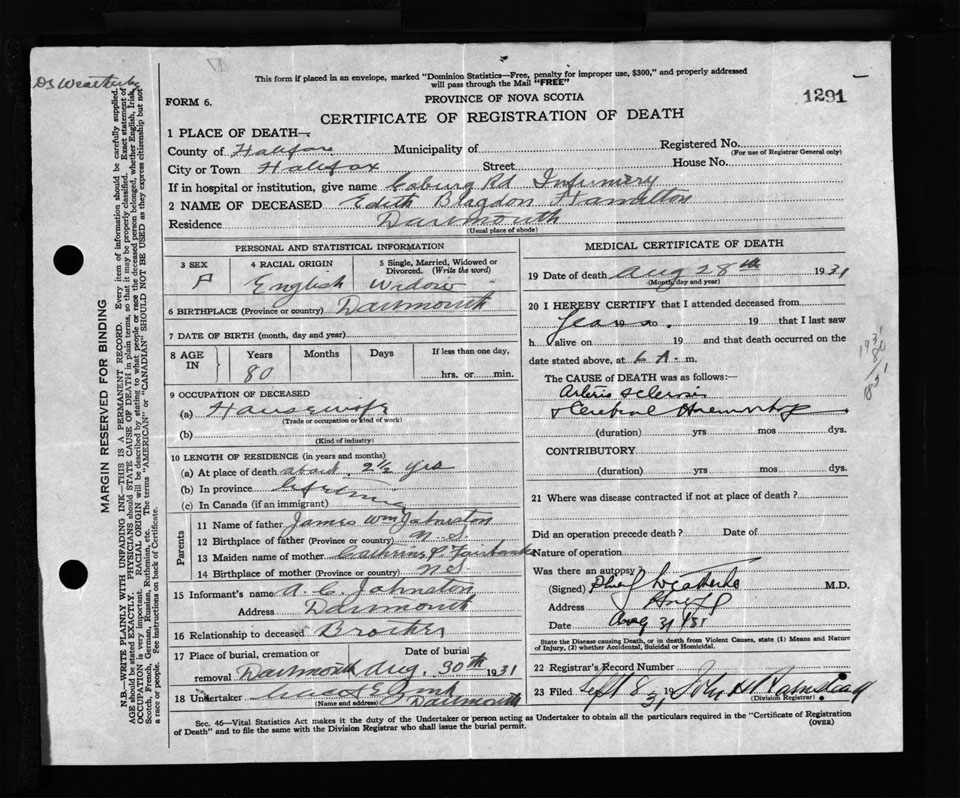 This form if placed in an envelope, marked "Dominion Statistics—Free, penalty for improper use, $300," and properly addressed
will pass through the Mail "FREE"
Dr Weatherbe
FORM 6.
PROVINCE OF NOVA SCOTIA
1291
CERTIFICATE OF REGISTRATION OF DEATH
MARGIN RESERVED FOR BINDING
N.B.—WRITE PLAINLY WITH UNFADING INK—THIS IS A PERMANENT RECORD. Every item of information should be carefully supplied.
AGE should be stated EXACTLY. PHYSICIANS should STATE CAUSE OF DEATH in plain terms, so that it may be properly classified. Exact statement of
OCCUPATION is very important. RACIAL ORIGIN will be described by stating to what people or race the deceased person belonged, whether English, Irish,
Scotch, French, German, Russian, Ruthenian, etc. The terms "AMERICAN" or "CANADIAN" SHOULD NOT BE USED as they express citizenship but not
a race or people. See instructions on back of Certificate.
1 PLACE OF DEATH—
County of Halifax Municipality of Registered No.
(For use of Registrar General only)
City or Town Halifax Street House No.
If in hospital or institution, give name Coburg Rd Infirmery
2 NAME OF DECEASED Edith Blagdon Hamilton
Residence Dartmouth
(Usual place of abode)
PERSONAL AND STATISTICAL INFORMATION
3 SEX 4 RACIAL ORIGIN 5 Single, Married, Widowed or
Divorced. (Write the word)
F English Widow
6 BIRTHPLACE (Province or country) Dartmouth
7 DATE OF BIRTH (month, day and year)
8 AGE IN Years Months Days If less than one day,
80 hrs. or min.
9 OCCUPATION OF DECEASED
(a) Housewife
(Trade or occupation or kind of work)
(b)
(Kind of industry)
10 LENGTH OF RESIDENCE (in years and months)
(a) At place of death about 2½ yrs
(b) In province Lifetime
(c) In Canada (if an immigrant)
Parents
11 Name of father James Wm Johnston
12 Birthplace of father (Province or country) N.S.
13 Maiden name of mother Catherine P. Fairbanks
14 Birthplace of mother (Province or country) N.S.
15 Informant's name A. C. Johnston
Address Dartmouth
16 Relationship to deceased Brother
17 Place of burial, cremation or Date of burial
removal Dartmouth Aug. 30th 1931
18 Undertaker
(Name and address) Dartmouth
MEDICAL CERTIFICATE OF DEATH
19 Date of death Aug 28th 1931
(Month, day and year)
20 I HEREBY CERTIFY that I attended deceased from
Years 19 to 19 that I last saw
h alive on 19 and that death occurred on the
date stated above, at 6 A. m.
The CAUSE OF DEATH was as follows:—
Arterio Sclerosis
& Cerebral Haemorrhage
(duration) yrs mos dys.
CONTRIBUTORY
(duration) yrs mos dys.
21 Where was disease contracted if not at place of death?
Did an operation precede death? Date of
Nature of operation
Was there an autopsy?
(Signed) Phil Weatherbe M.D.
Address Hfx
Date Aug 31/31
State the Disease causing Death, or in death from Violent Causes, state (1) Means and Nature
of Injury, (2) whether Accidental, Suicidal or Homicidal.
22 Registrar's Record Number
23 Filed Sept 8 1931 John
(Division Registrar)
Sec. 46—Vital Statistics Act makes it the duty of the Undertaker or person acting as Undertaker to obtain all the particulars required in the "Certificate of Registration
of Death" and to file the same with the Division Registrar who shall issue the burial permit.
(OVER)